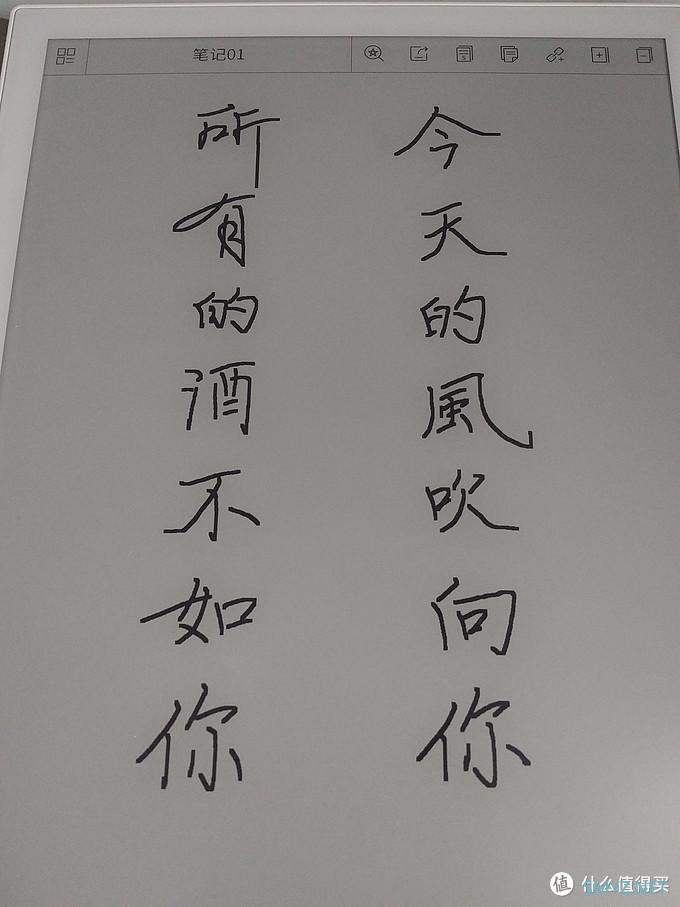 笔记01
今天的風吹向你
所有的酒不如你
值 什么值得买